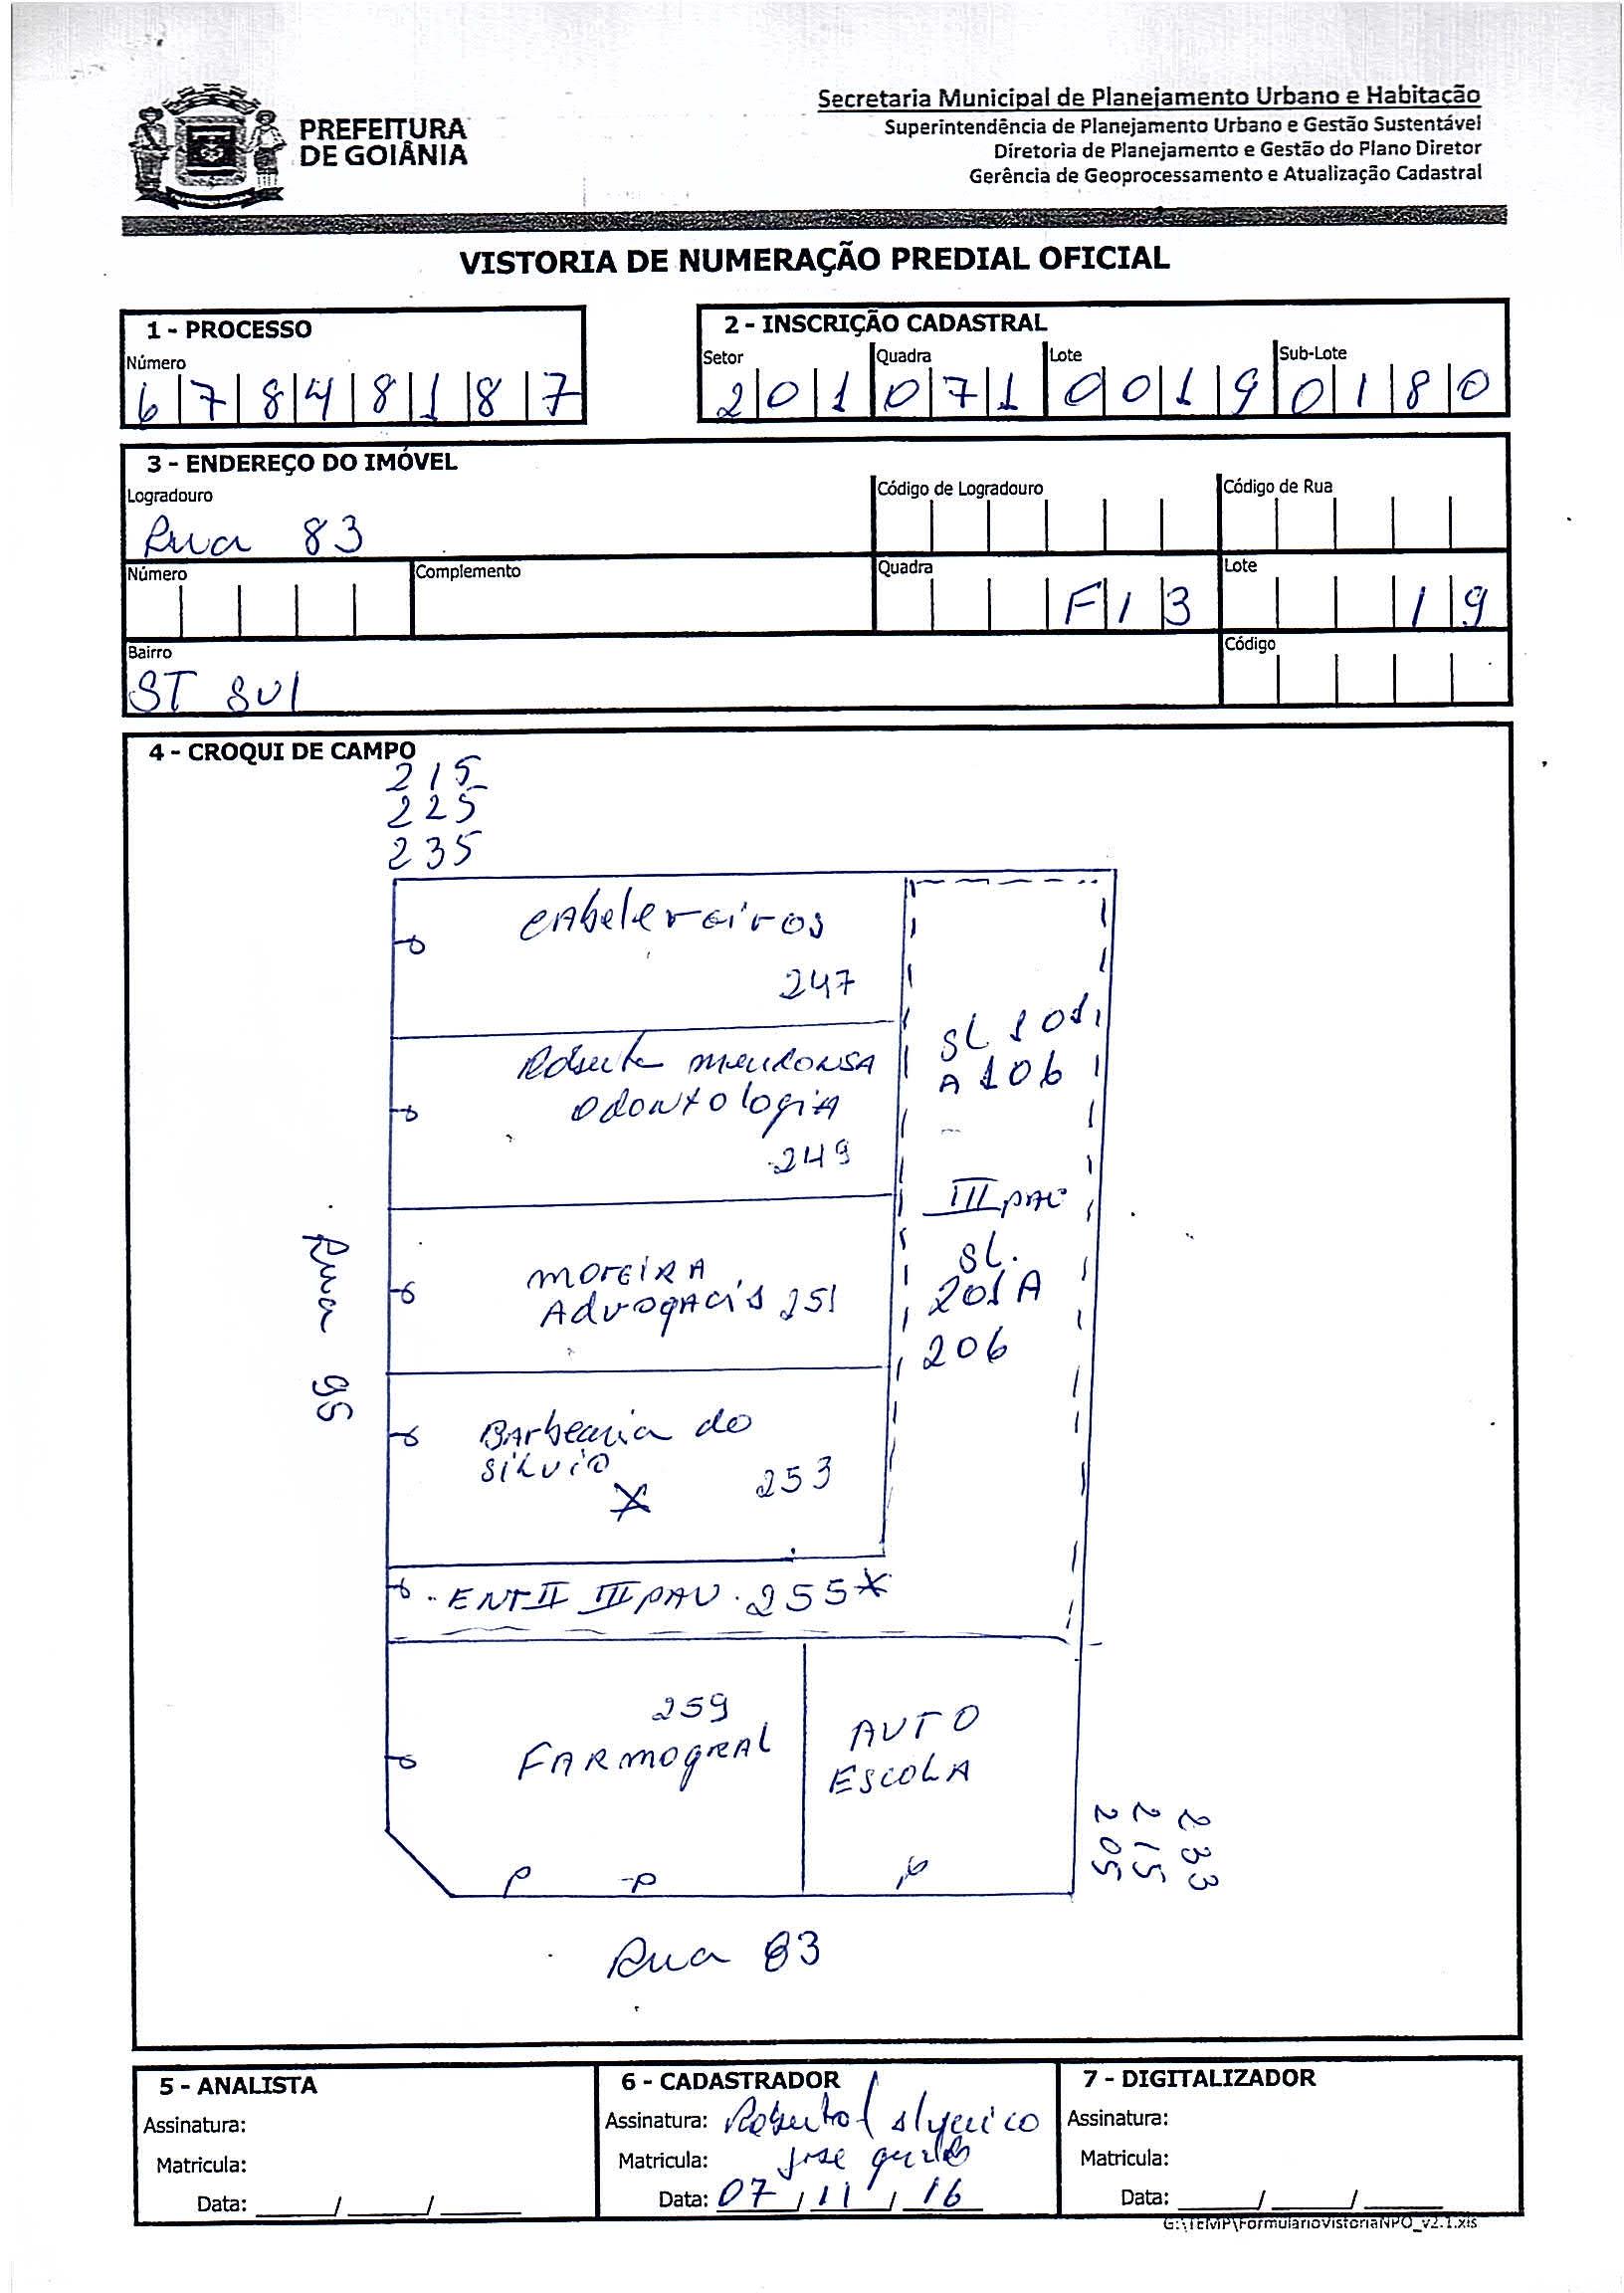 PREFEITURA
DE GOIÂNIA
Secretaria Municipal de Planejamento Urbano e Habitação
Superintendência de Planejamento Urbano e Gestão Sustentável
Diretoria de Planejamento e Gestão do Plano Diretor
Gerência de Geoprocessamento e Atualização Cadastral
VISTORIA DE NUMERAÇÃO PREDIAL OFICIAL
1 - PROCESSO
Número
6 7 8 4 8 1 8 7
2 - INSCRIÇÃO CADASTRAL
Setor Quadra Lote Sub-Lote
2 0 1 0 7 1 0 0 1 9 0 1 8 0
3 - ENDEREÇO DO IMÓVEL
Logradouro Código de Logradouro Código de Rua
Rua 83
Número Complemento Quadra Lote
F 1 3 1 9
Bairro Código
ST SUL
4 - CROQUI DE CAMPO
215
225
235
CAbelereiros
247
SL 101
A 106
Roberta mendonsA
OdontologiA
249
III PAV
moreiRA
AdvogAciA 251
SL.
201 A
206
Rua 95
BArbearia do
SILVIO
253
ENT II III PAV. 255
259
FARmogRAL
AUTO
ESCOLA
233
215
205
Rua 83
5 - ANALISTA
Assinatura:
Matricula:
Data: ____/____/____
6 - CADASTRADOR
Assinatura: Roberto
Matricula: Jose
Data: 07 / 11 / 16
7 - DIGITALIZADOR
Assinatura:
Matricula:
Data: ____/____/____
G:\TEMP\FormularioVistoriaNPO_v2.1.xls